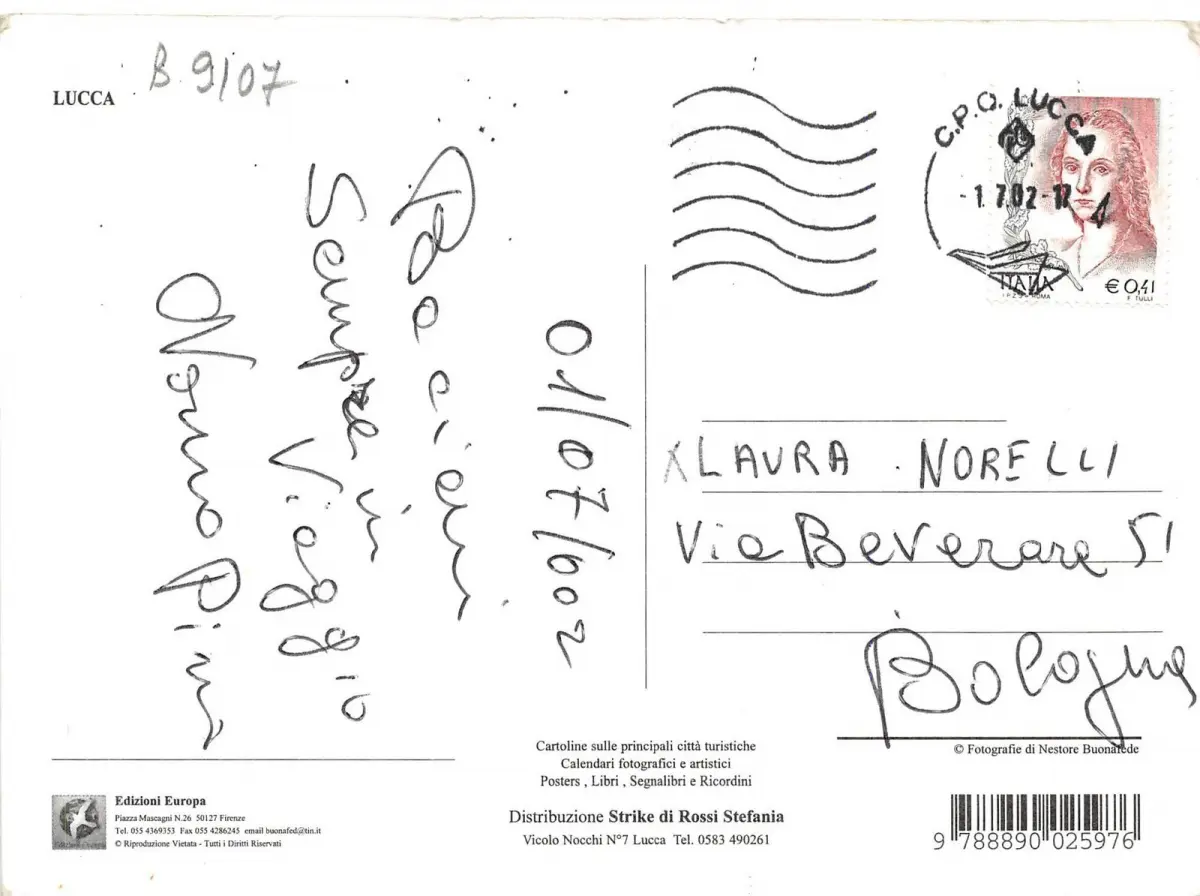 LUCCA
B. 9/07
C.P.O. LUCCA
- 1.7.02-17
ITALIA
I.P.Z.S. - ROMA
€ 0,41
F. TULLI
01/07/2002
Bacioni
Sempre in
Viaggio
Nonno Pim
X LAURA NORELLI
Via Beverara 51
Bologna
© Fotografie di Nestore Buonafede
Cartoline sulle principali città turistiche
Calendari fotografici e artistici
Posters , Libri , Segnalibri e Ricordini
Distribuzione Strike di Rossi Stefania
Vicolo Nocchi N°7 Lucca Tel. 0583 490261
Edizioni Europa
Piazza Mascagni N.26 50127 Firenze
Tel. 055 4369353 Fax 055 4286245 email buonafed@tin.it
© Riproduzione Vietata - Tutti i Diritti Riservati
9 788890 025976